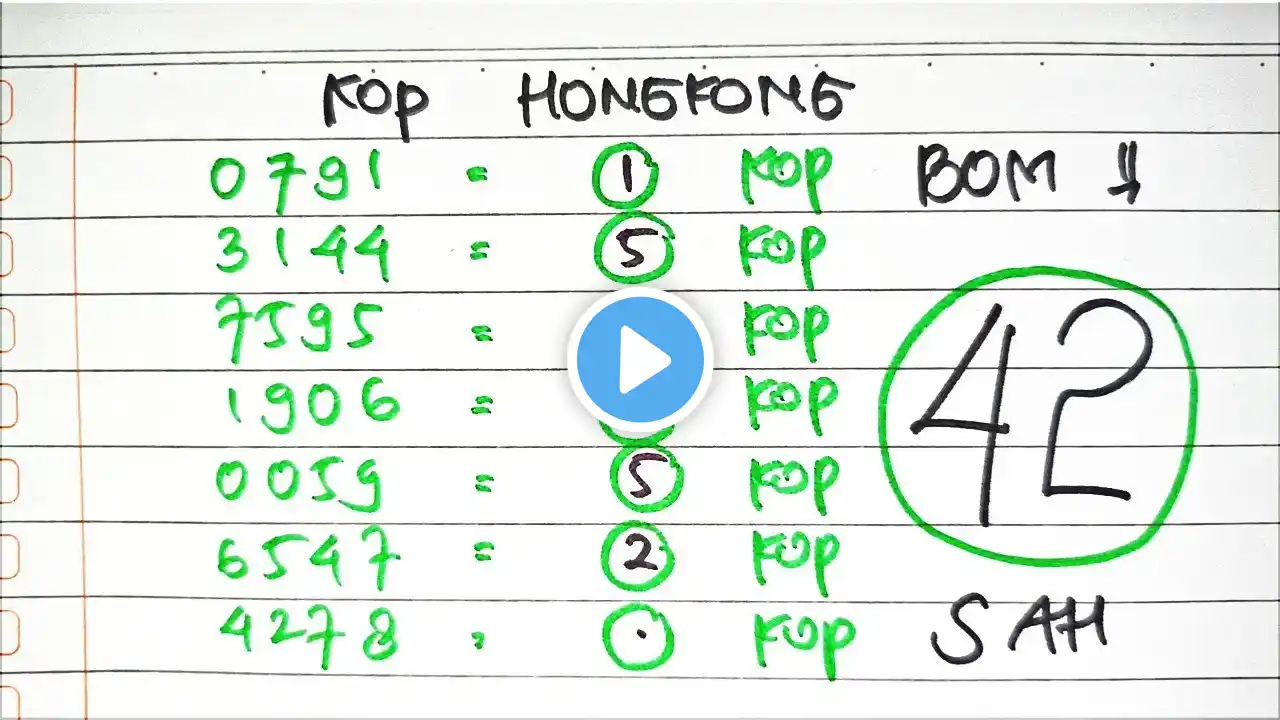 KOP HONGKONG
0791 = 1 KOP BOM
3144 = 5 KOP
7595 = KOP
1906 = KOP
42
0059 = 5 KOP
6547 = 2 KOP
4278 = . KOP SAH